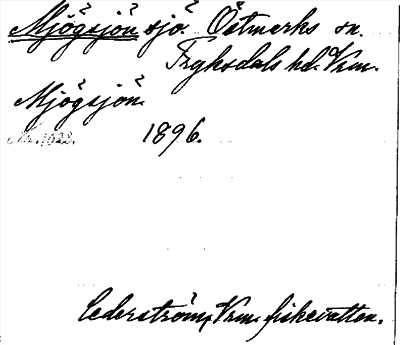 Mjögsjön sjö. Östmarks sn.
Fryksdals hd. Vrm.
Mjögsjön.
1896.
Cederström, Vrm. fiskevatten.